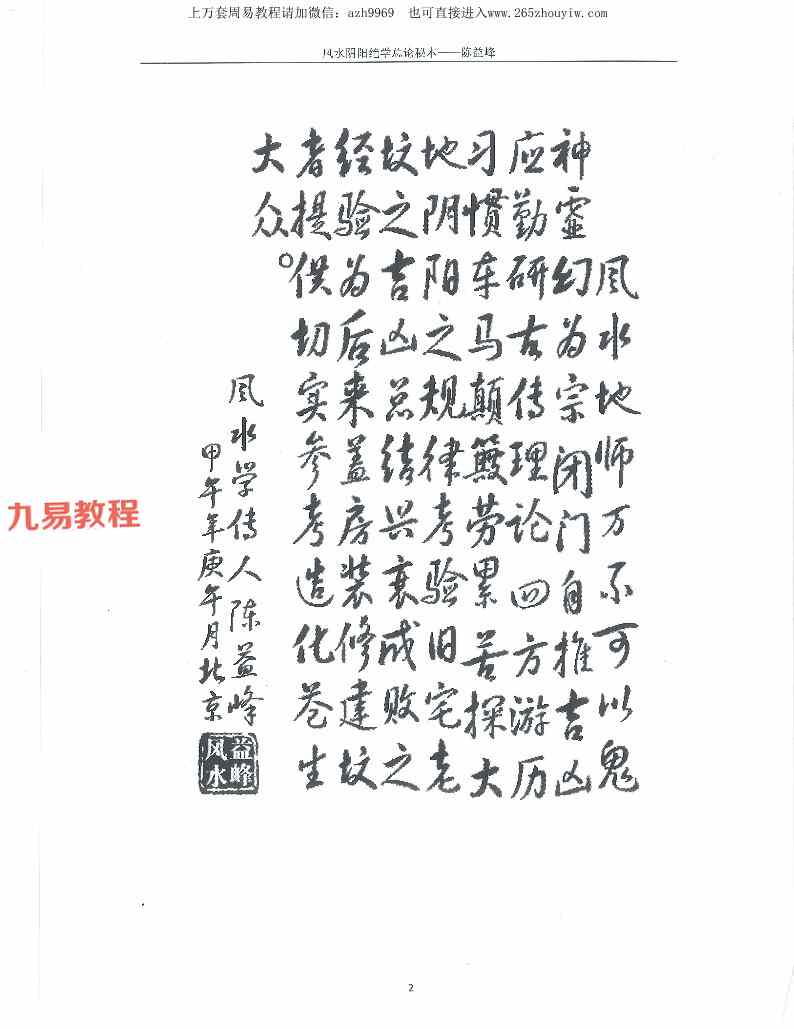 上万套周易教程请加微信：azh9969 也可直接进入www.265zhouyiw.com
风水阴阳绝学总论秘本——陈益峰
风水地师万不可以鬼
神霊幻为宗闭门自推吉凶
应勤研古传理论四方游历
习惯车马颠簸劳累苦探大
地阴阳之规律考验旧宅老
坟之吉凶总结兴衰成败之
经验为后来盖房装修建坟
者提供切实参考造化苍生
大众。
风水学传人陈益峰
甲午年庚午月北京
益峰
风水
九易教程
2